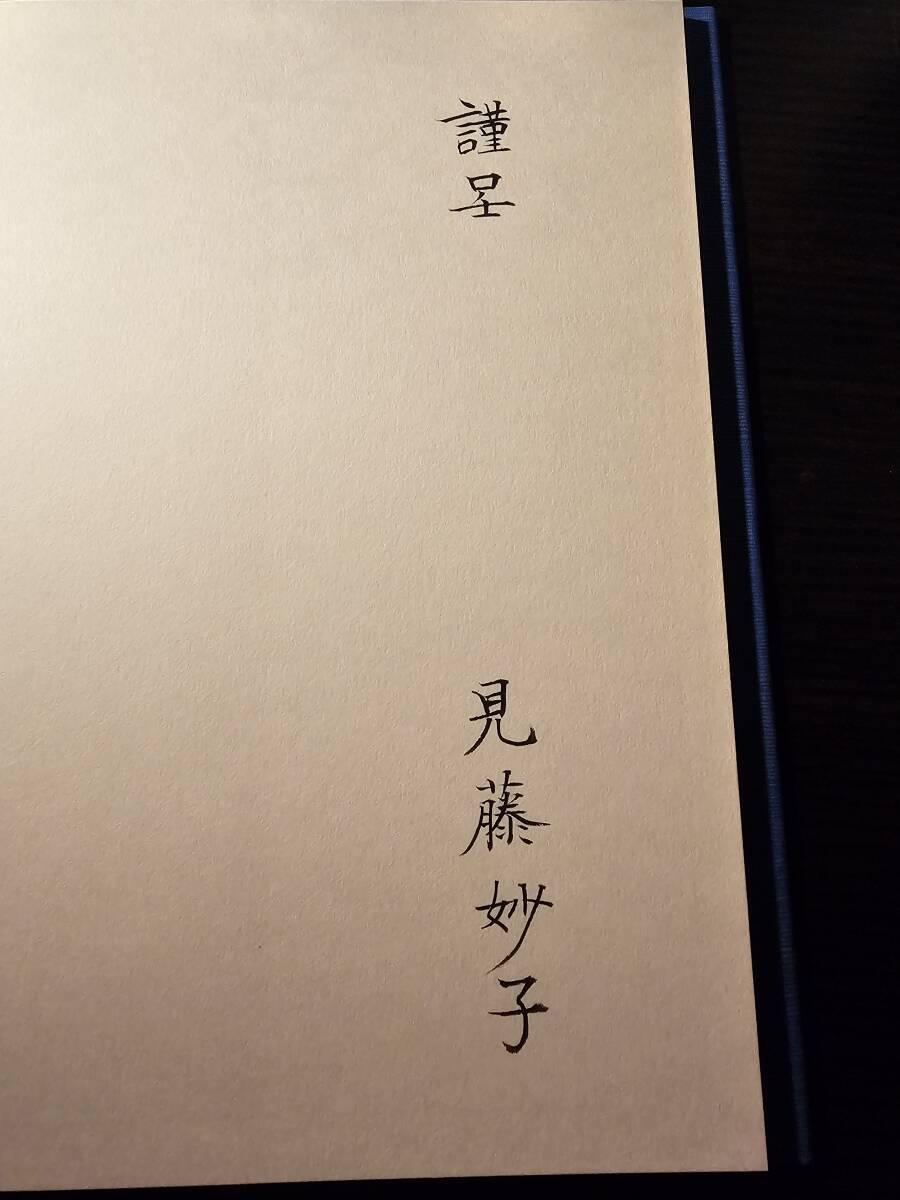 謹呈
見藤妙子